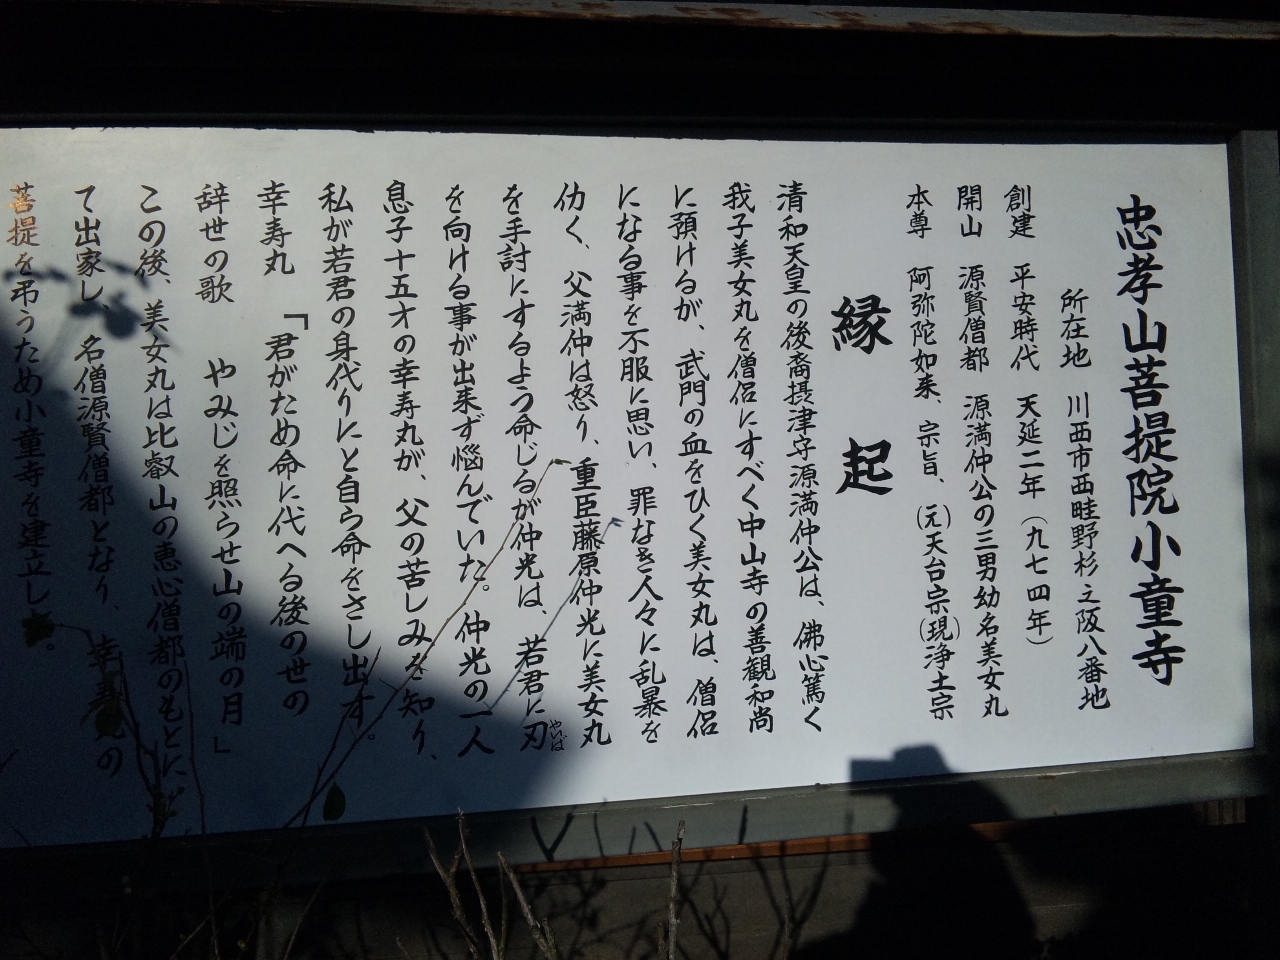 忠孝山菩提院小童寺
所在地 川西市西畦野杉之阪八番地
創建 平安時代 天延二年(九七四年)
開山 源賢僧都 源満仲公の三男幼名美女丸
本尊 阿弥陀如来、宗旨、(元)天台宗(現)浄土宗
縁起
清和天皇の後裔摂津守源満仲公は、佛心篤く
我子美女丸を僧侶にすべく中山寺の善観和尚
に預けるが、武門の血をひく美女丸は、僧侶
になる事を不服に思い、罪なき人々に乱暴を
仂く、父満仲は怒り、重臣藤原仲光に美女丸
を手討にするよう命じるが仲光は、若君に刃
やいば
を向ける事が出来ず悩んでいた。仲光の一人
息子十五才の幸寿丸が、父の苦しみを知り、
私が若君の身代りにと自ら命をさし出す。
幸寿丸 「君がため命に代へる後の世の
辞世の歌 やみじを照らせ山の端の月」
この後、美女丸は比叡山の恵心僧都のもとに
て出家し、名僧源賢僧都となり、幸寿丸の
菩提を弔うため小童寺を建立し。